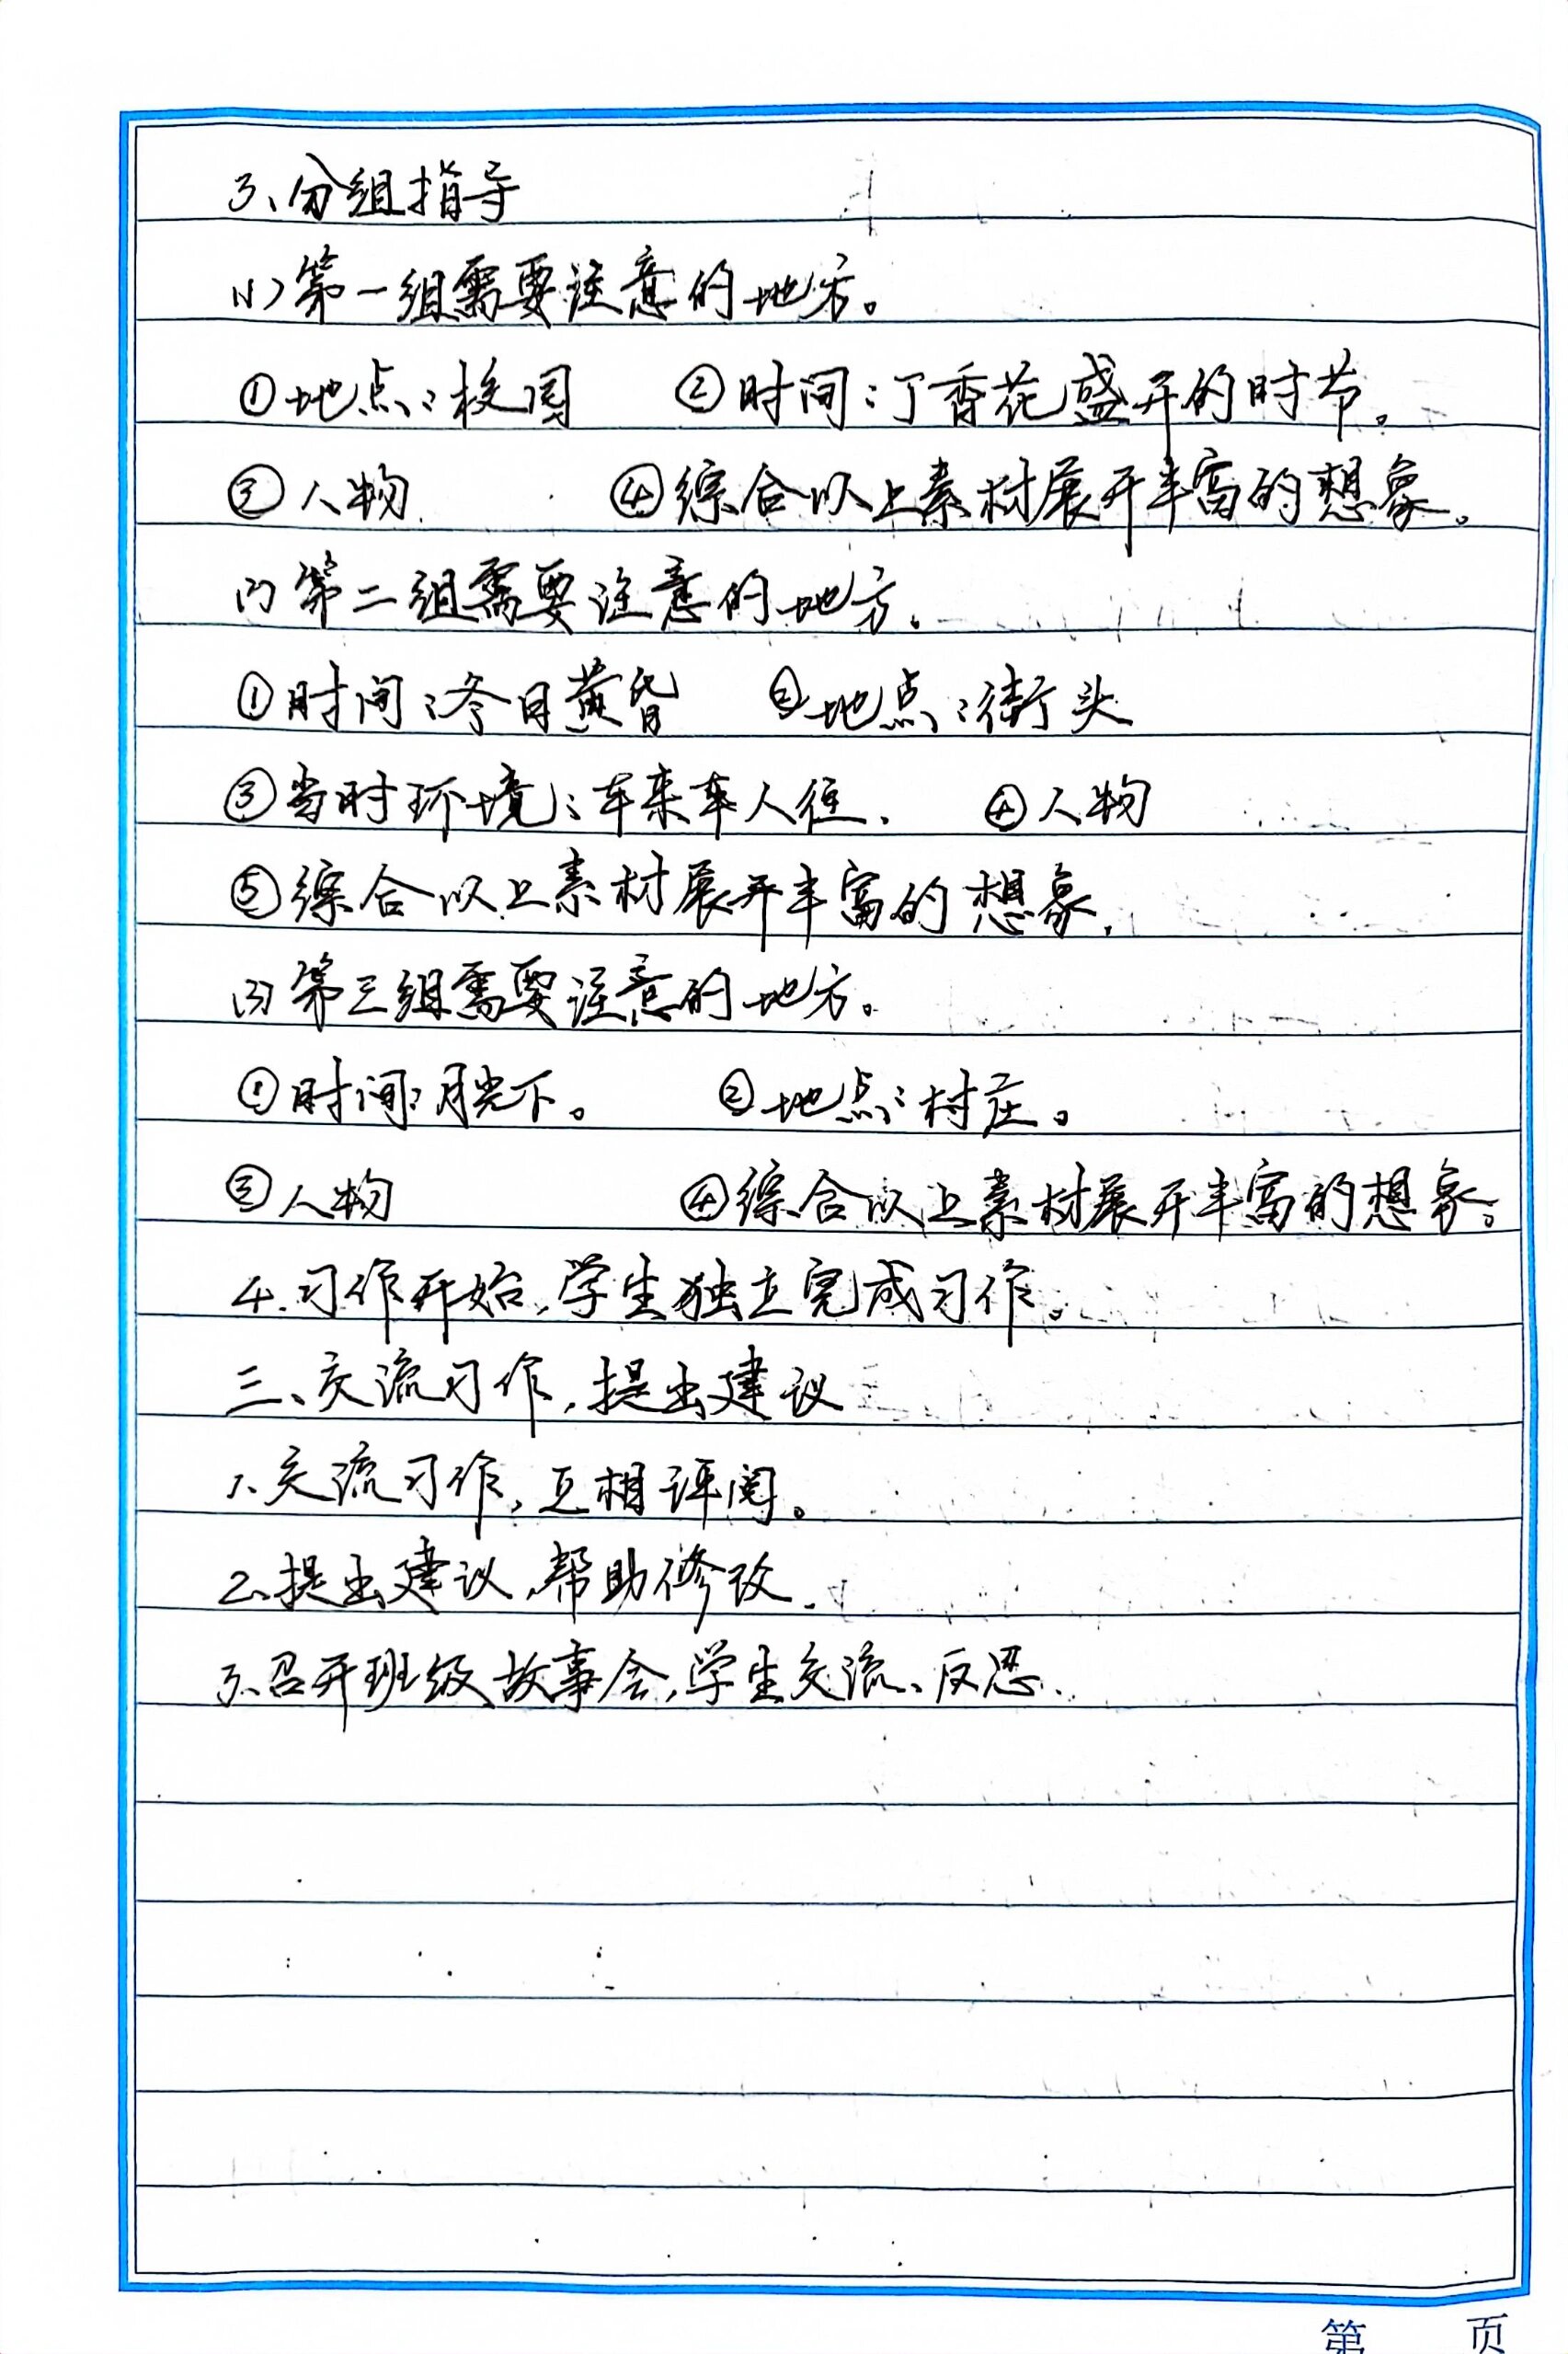 3、分组指导
(1)第一组需要注意的地方。
①地点：校园 ②时间：丁香花盛开的时节。
③人物 ④综合以上素材展开丰富的想象。
(2)第二组需要注意的地方.
①时间：冬日黄昏 ②地点：街头
③当时环境：车来车人往. ④人物
⑤综合以上素材展开丰富的想象.
(3)第三组需要注意的地方。
①时间：月光下。 ②地点：村庄。
③人物 ④综合以上素材展开丰富的想象。
4.习作开始,学生独立完成习作。
三、交流习作,提出建议
1、交流习作,互相评阅。
2、提出建议,帮助修改.
3、召开班级故事会,学生交流、反思.
第 页